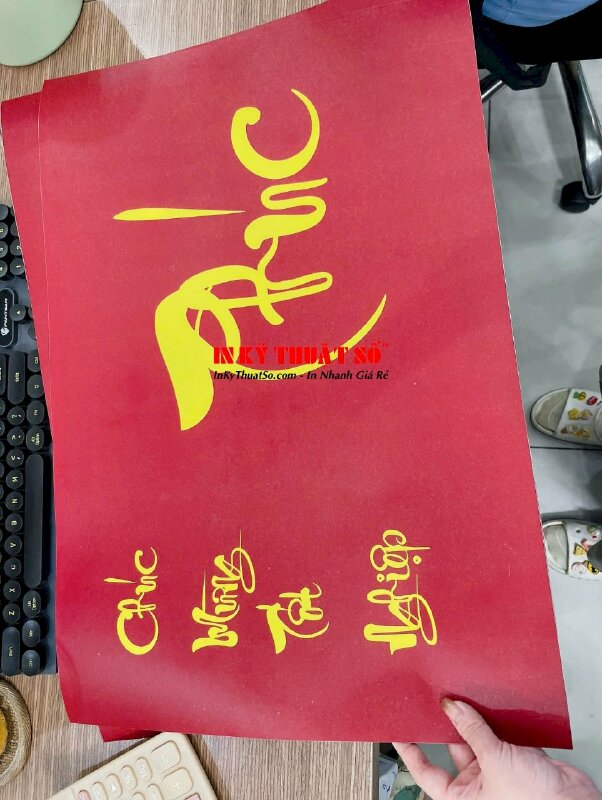 Phúc
Chúc
Mừng
Tốt
Nghiệp
IN KỸ THUẬT SỐ
InKyThuatSo.com - In Nhanh Giá Rẻ